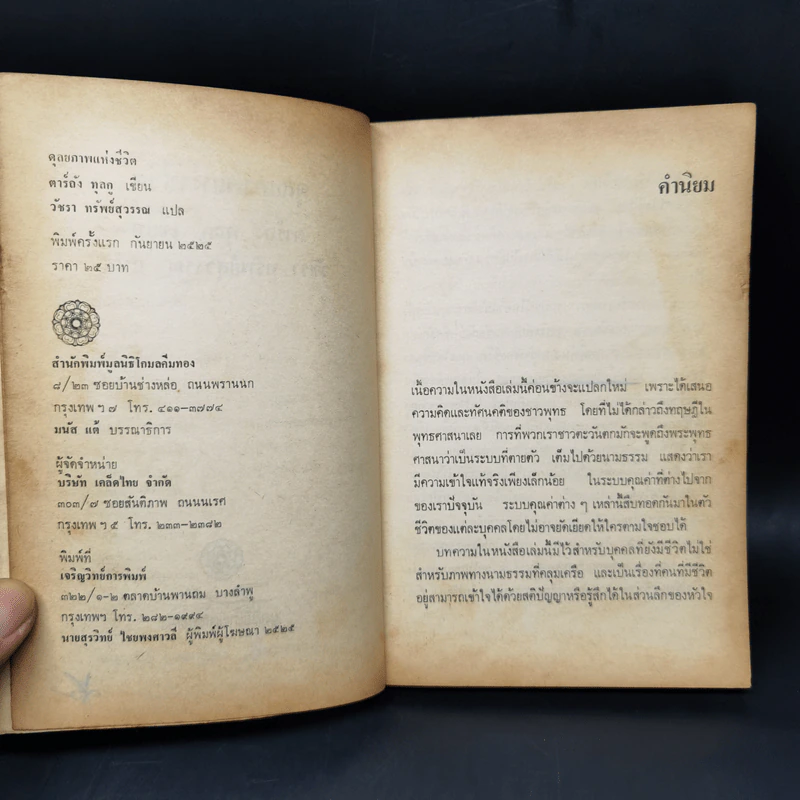 ดุลยภาพแห่งชีวิต
ตาร์ถัง ทุลกู เขียน
วัชรา ทรัพย์สุวรรณ แปล
พิมพ์ครั้งแรก กันยายน ๒๕๒๕
ราคา ๒๕ บาท
สำนักพิมพ์มูลนิธิโกมลคีมทอง
๘/๒๓ ซอยบ้านช่างหล่อ ถนนพรานนก
กรุงเทพฯ ๗ โทร. ๔๑๑-๓๗๗๔
มนัส แต้ บรรณาธิการ
ผู้จัดจำหน่าย
บริษัท เคล็ดไทย จำกัด
๓๐๓/๗ ซอยสันติภาพ ถนนนเรศ
กรุงเทพฯ ๕ โทร. ๒๓๓-๒๓๘๒
พิมพ์ที่
เจริญวิทย์การพิมพ์
๓๒๒/๑-๒ ตลาดบ้านพานถม บางลำพู
กรุงเทพฯ โทร. ๒๘๒-๑๙๙๔
นายสุรวิทย์ ไชยพงศาวลี ผู้พิมพ์ผู้โฆษณา ๒๕๒๕
คำนิยม
เนื้อความในหนังสือเล่มนี้ค่อนข้างจะแปลกใหม่ เพราะได้เสนอ
ความคิดและทัศนคติของชาวพุทธ โดยที่ไม่ได้กล่าวถึงทฤษฎีใน
พุทธศาสนาเลย การที่พวกเราชาวตะวันตกมักจะพูดถึงพระพุทธ
ศาสนาว่าเป็นระบบที่ตายตัว เต็มไปด้วยนามธรรม แสดงว่าเรา
มีความเข้าใจแท้จริงเพียงเล็กน้อย ในระบบคุณค่าที่ต่างไปจาก
ของเราปัจจุบัน ระบบคุณค่าต่าง ๆ เหล่านี้สืบทอดกันมาในตัว
ชีวิตของแต่ละบุคคลโดยไม่อาจยัดเยียดให้ใครตามใจชอบได้
บทความในหนังสือเล่มนี้มีไว้สำหรับบุคคลที่ยังมีชีวิตไม่ใช่
สำหรับภาพทางนามธรรมที่คลุมเครือ และเป็นเรื่องที่คนที่มีชีวิต
อยู่สามารถเข้าใจได้ด้วยสติปัญญาหรือรู้สึกได้ในส่วนลึกของหัวใจ